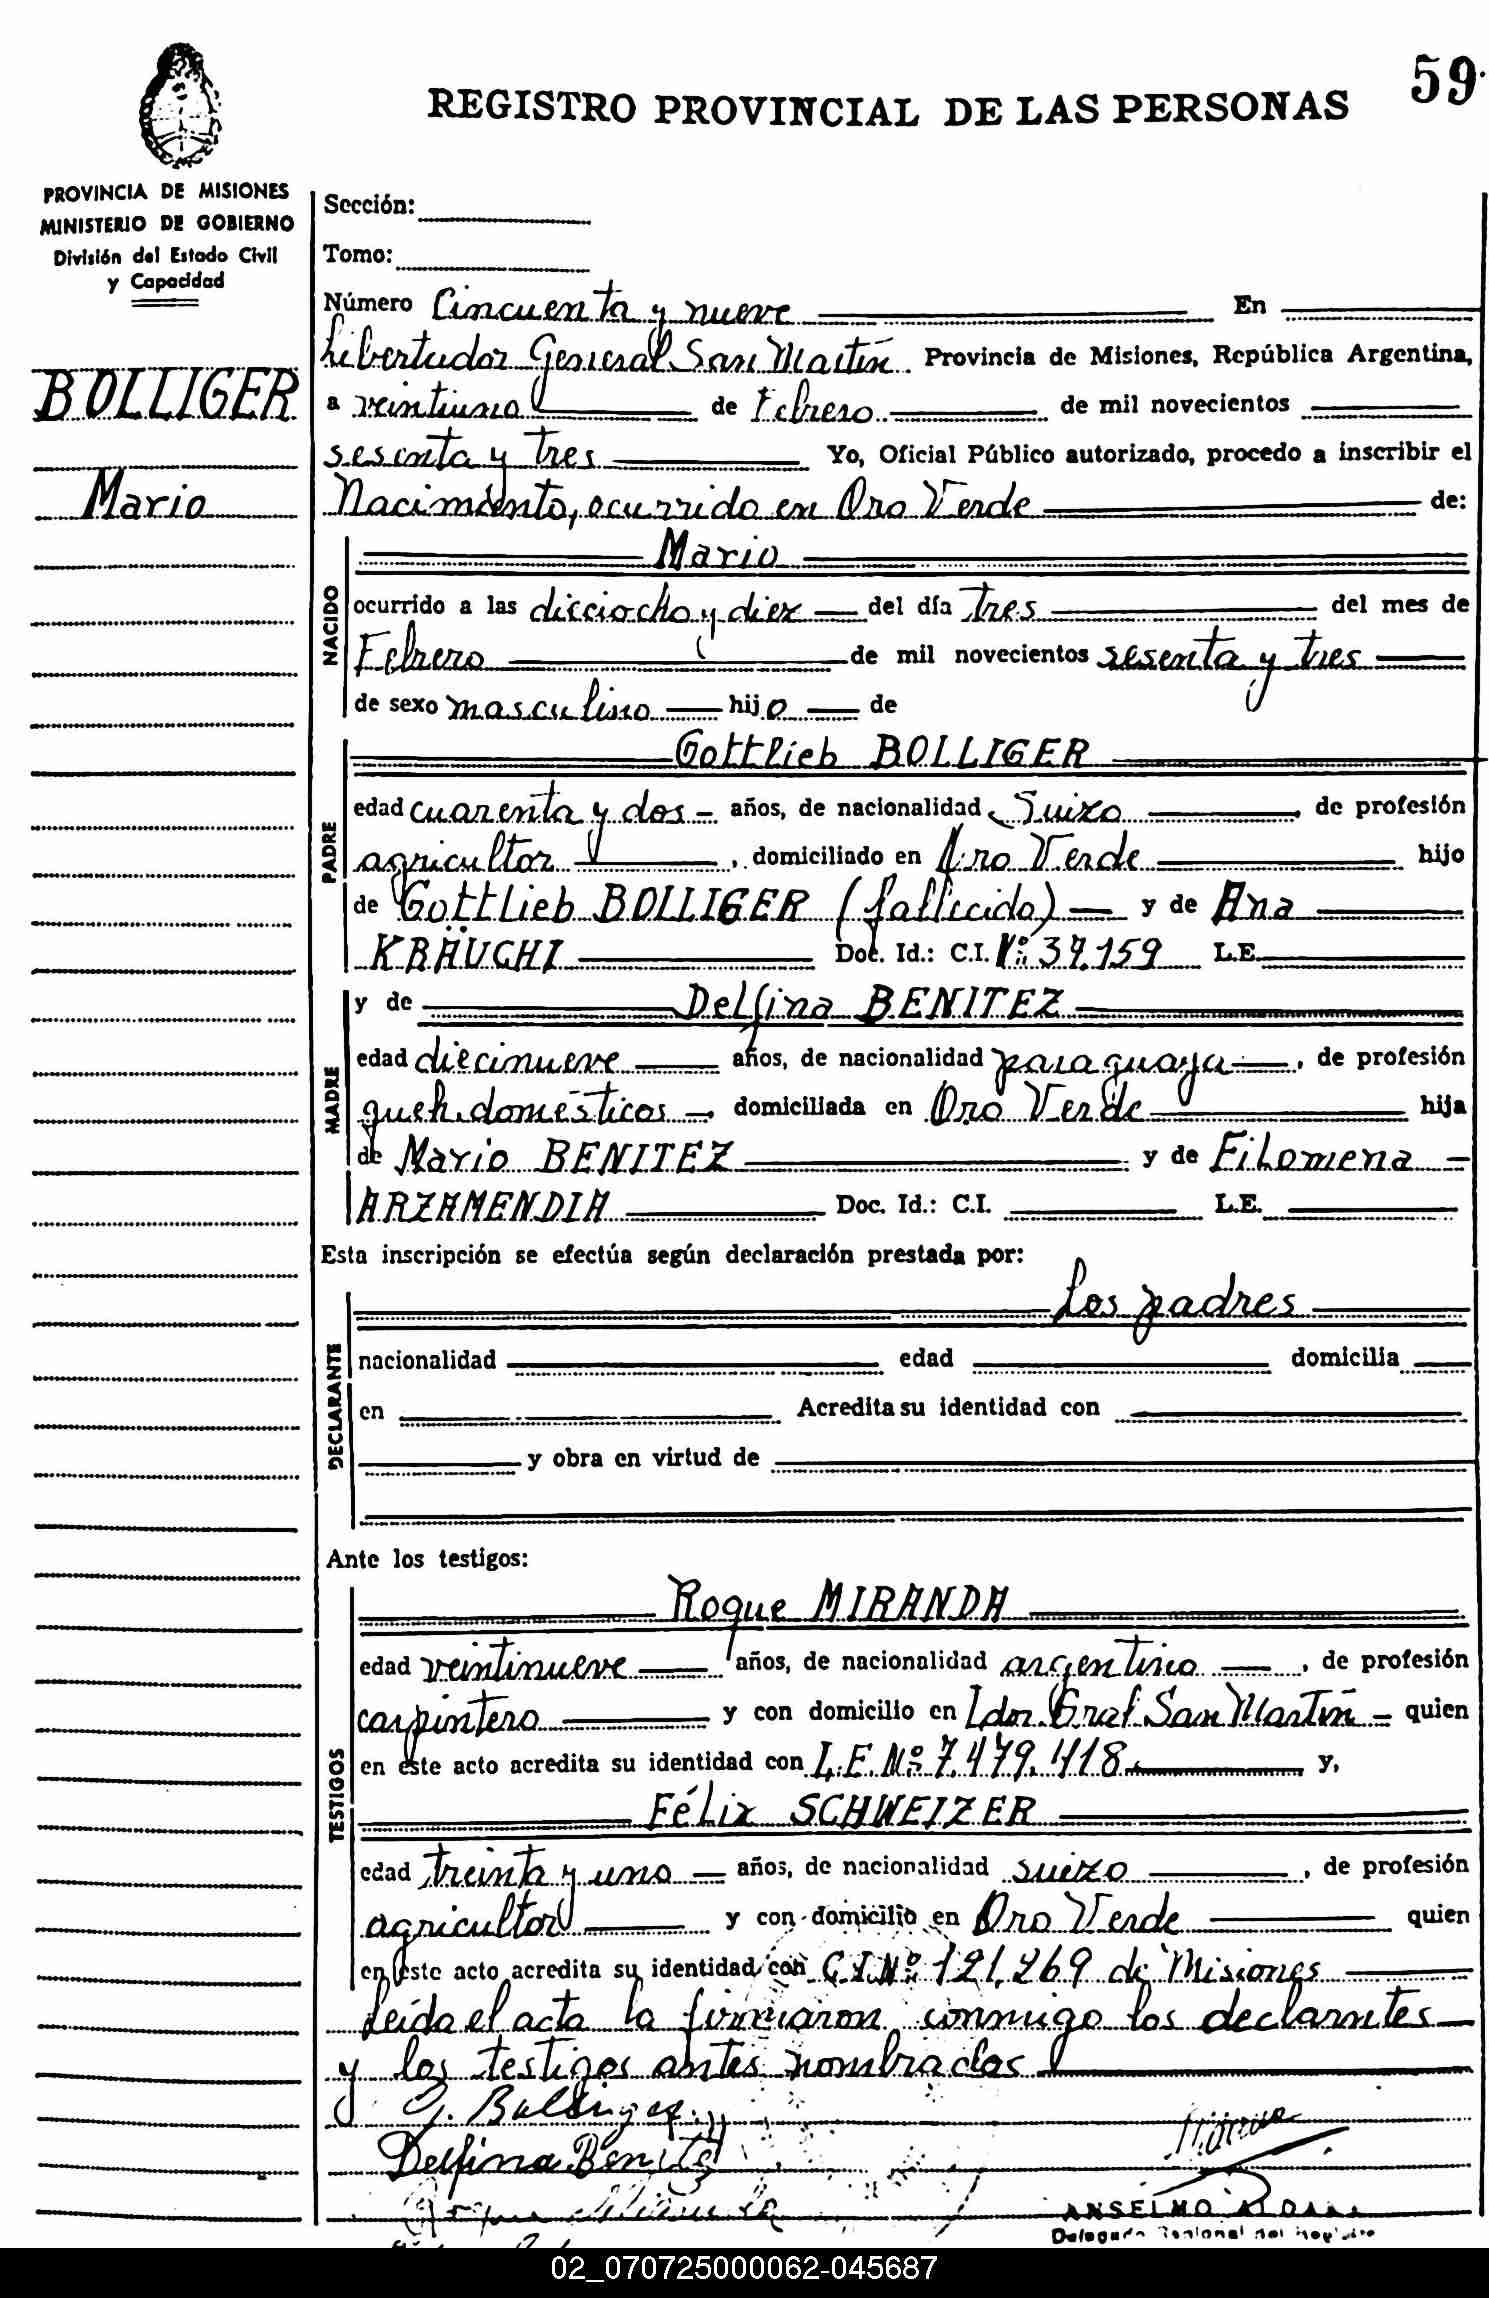 59
REGISTRO PROVINCIAL DE LAS PERSONAS
PROVINCIA DE MISIONES
MINISTERIO DE GOBIERNO
División del Estado Civil
y Capacidad
BOLLIGER
Mario
Sección:
Tomo:
Número Cincuenta y nueve En
Libertador General San Martín. Provincia de Misiones, República Argentina,
a veintiuno de Febrero de mil novecientos
sesenta y tres Yo, Oficial Público autorizado, procedo a inscribir el
Nacimiento, ocurrido en Oro Verde de:
NACIDO
Mario
ocurrido a las dieciocho y diez del día tres del mes de
Febrero de mil novecientos sesenta y tres
de sexo masculino hijo de
PADRE
Gottlieb BOLLIGER
edad cuarenta y dos años, de nacionalidad Suizo, de profesión
agricultor, domiciliado en Oro Verde hijo
de Gottlieb BOLLIGER (fallecido) y de Ana
KRÄUCHI Doc. Id.: C.I. Nº 37.159 L.E.
MADRE
y de Delfina BENITEZ
edad diecinueve años, de nacionalidad paraguaya, de profesión
queh. domésticos, domiciliada en Oro Verde hija
de Mario BENITEZ y de Filomena
ARZAMENDIA Doc. Id.: C.I. L.E.
Esta inscripción se efectúa según declaración prestada por:
DECLARANTE
Los padres
nacionalidad edad domicilia
en Acredita su identidad con
y obra en virtud de
Ante los testigos:
TESTIGOS
Roque MIRANDA
edad veintinueve años, de nacionalidad argentino, de profesión
carpintero y con domicilio en Ldor. Gral San Martín quien
en este acto acredita su identidad con L.E. Nº 7.479.418. y,
Félix SCHWEIZER
edad treinta y uno años, de nacionalidad suizo, de profesión
agricultor y con domicilio en Oro Verde quien
en este acto acredita su identidad con C.I. Nº 121.269 de Misiones
Leída el acta la firmaron conmigo los declarantes
y los testigos antes nombrados
G. Bolliger
Delfina Benitez
ANSELMO
02_070725000062-045687